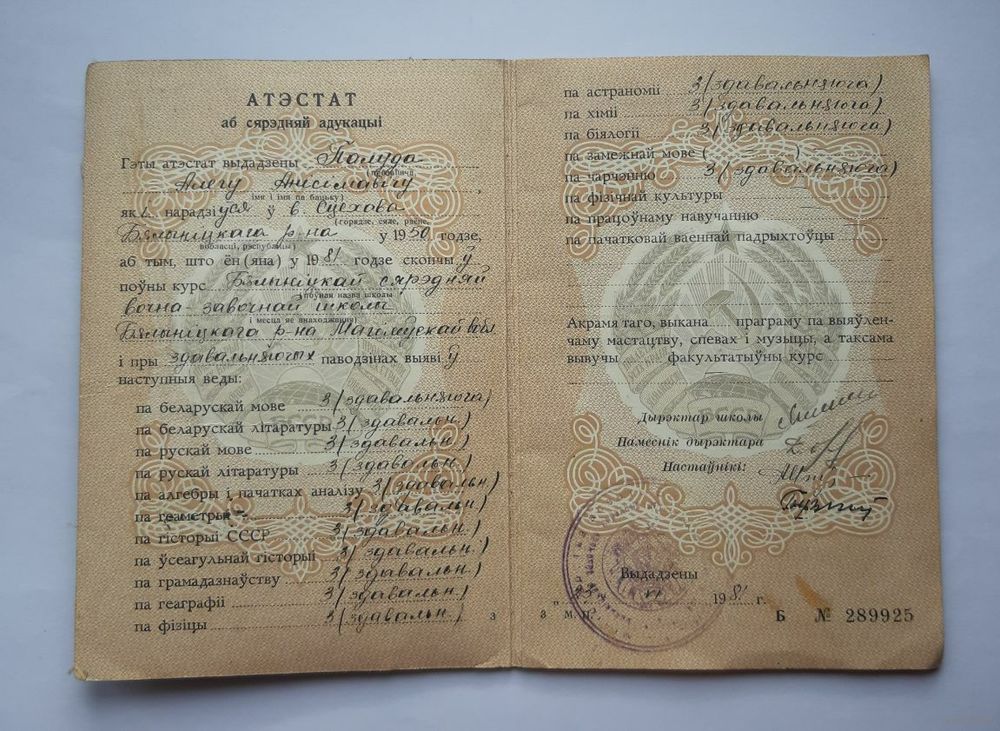 АТЭСТАТ
аб сярэдняй адукацыі
Гэты атэстат выдадзены Палуда
(прозвішча)
Алегу Анісімавічу
імя і імя па бацьку)
які нарадзіўся ў в. Сцехова
(горадзе, сяле, раёне,
Бялыніцкага р-на у 1950 годзе,
вобласці, рэспубліцы)
аб тым, што ён (яна) у 1981 годзе скончыў
поўны курс Бялыніцкай сярэдняй
(поўная назва школы
вочна-завочнай школы
і месца яе знаходжання)
Бялыніцкага р-на Магілёўскай вобл
і пры здавальняючых паводзінах выявіў
наступныя веды:
па беларускай мове 3 (здавальняюча)
па беларускай літаратуры 3 (здавальн.)
па рускай мове 3 (здавальн.)
па рускай літаратуры 3 (здавальн.)
па алгебры і пачатках аналізу 3 (здавальн.)
па геаметрыі 3 (здавальн.)
па гісторыі СССР 3 (здавальн.)
па ўсеагульнай гісторыі 3 (здавальн.)
па грамадазнаўству 3 (здавальн.)
па геаграфіі 3 (здавальн.)
па фізіцы 3 (здавальн.)
з
па астраноміі 3 (здавальняюча)
па хіміі 3 (здавальняюча)
па біялогіі 3 (здавальняюча)
па замежнай мове ( )
па чарчэнню 3 (здавальняюча)
па фізічнай культуры
па працоўнаму навучанню
па пачатковай ваеннай падрыхтоўцы
Акрамя таго, выкана праграму па выяўлен-
чаму мастацтву, спевах і музыцы, а таксама
вывучы факультатыўны курс
Дырэктар школы
Намеснік дырэктара
Настаўнікі:
Выдадзены
1981 г.
З М. П.
Б № 289925